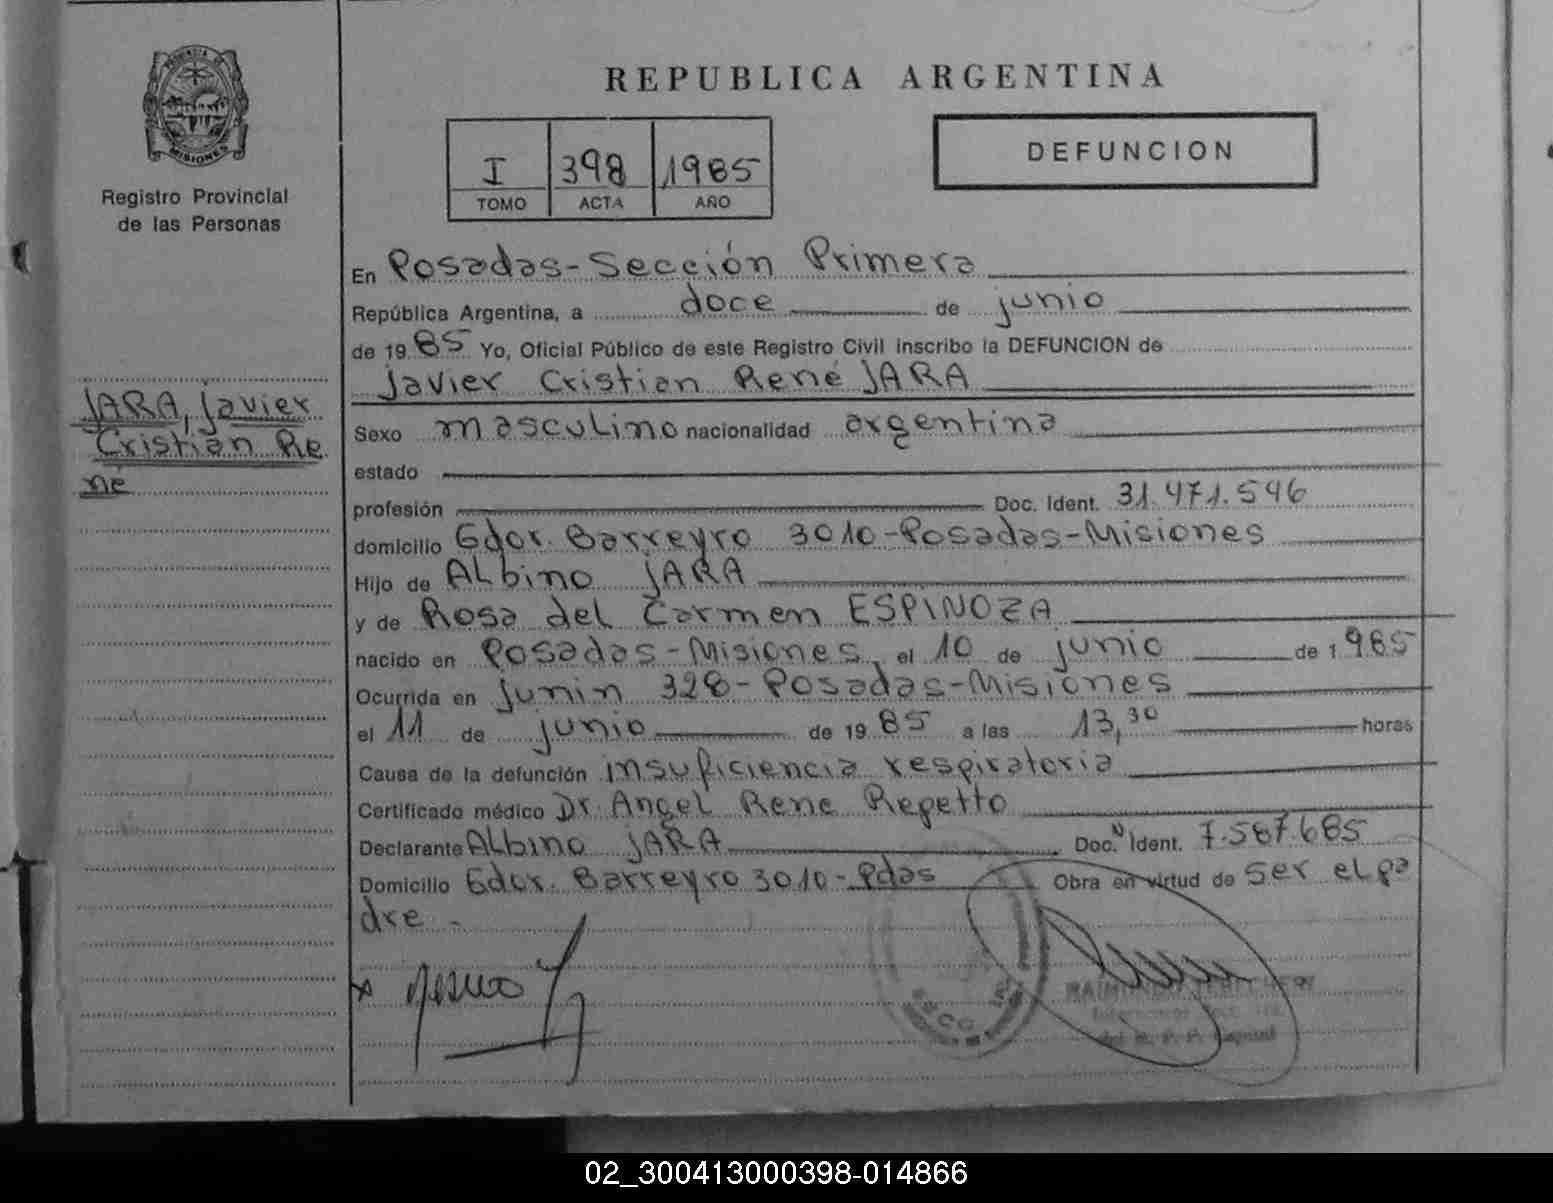 PROVINCIA DE
MISIONES
Registro Provincial
de las Personas
JARA, Javier
Cristian Re
né
REPUBLICA ARGENTINA
I 398 1985
TOMO ACTA AÑO
DEFUNCION
En Posadas-Sección Primera
República Argentina, a doce de junio
de 1985 Yo, Oficial Público de este Registro Civil inscribo la DEFUNCION de
Javier Cristian René JARA
Sexo masculino nacionalidad argentina
estado
profesión Doc. Ident. 31.471.546
domicilio Gdor. Barreyro 3010-Posadas-Misiones
Hijo de Albino JARA
y de Rosa del Carmen ESPINOZA
nacido en Posadas-Misiones, el 10 de junio de 1.985
Ocurrida en junin 328-Posadas-Misiones
el 11 de junio de 1985 a las 13,30 horas
Causa de la defunción insuficiencia respiratoria
Certificado médico Dr. Angel Rene Repetto
Declarante Albino JARA Doc. N Ident. 7.587.685
Domicilio Gdor. Barreyro 3010-Pdas Obra en virtud de ser el pa
dre.-
x
02_300413000398-014866